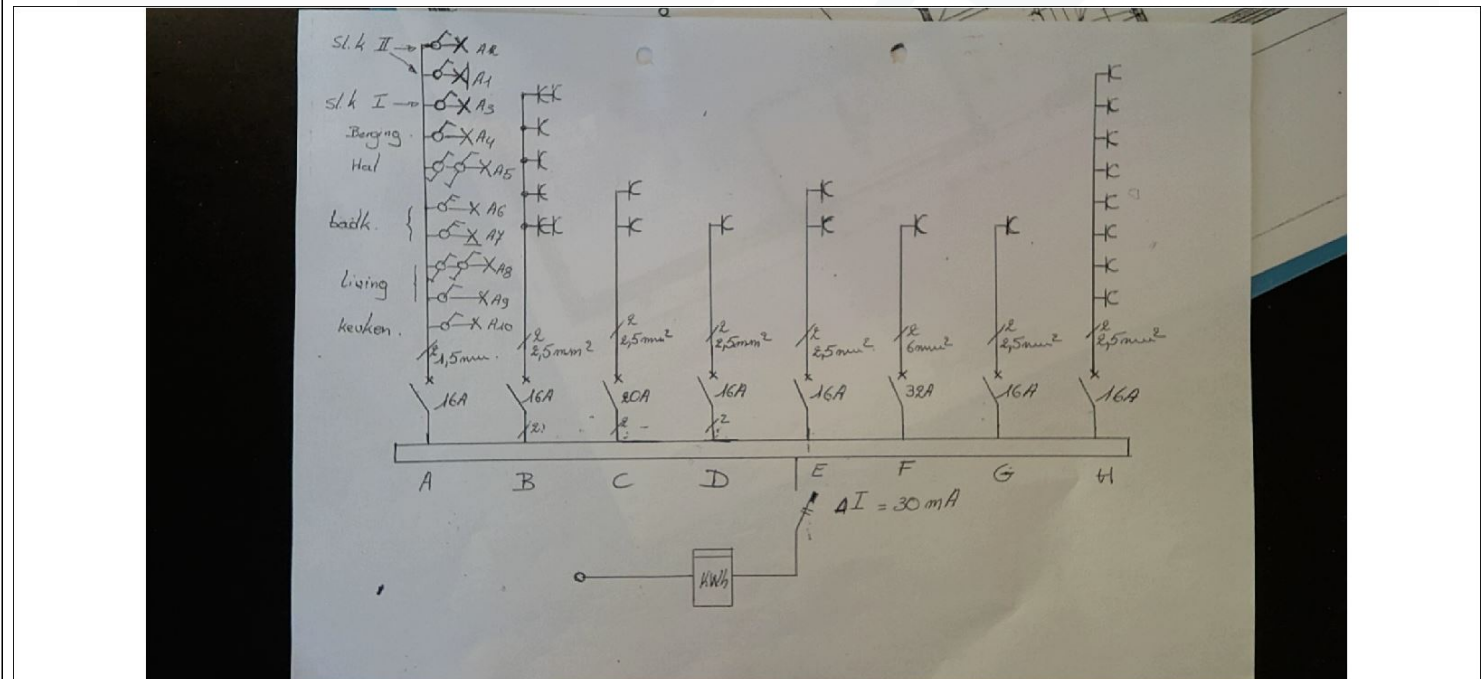 sl.k II
A2
A1
sl.k I
A3
Berging.
A4
Hal
A5
badk.
A6
A7
living
A8
A9
keuken.
A10
2
1,5mm.
2
2,5mm²
2
2,5mm²
2
2,5mm²
2
2,5mm².
2
6mm²
2
2,5mm²
2
2,5mm²
16A
16A
20A
16A
16A
32A
16A
16A
2
2
2
A B C D E F G H
ΔI = 30 mA
KWh